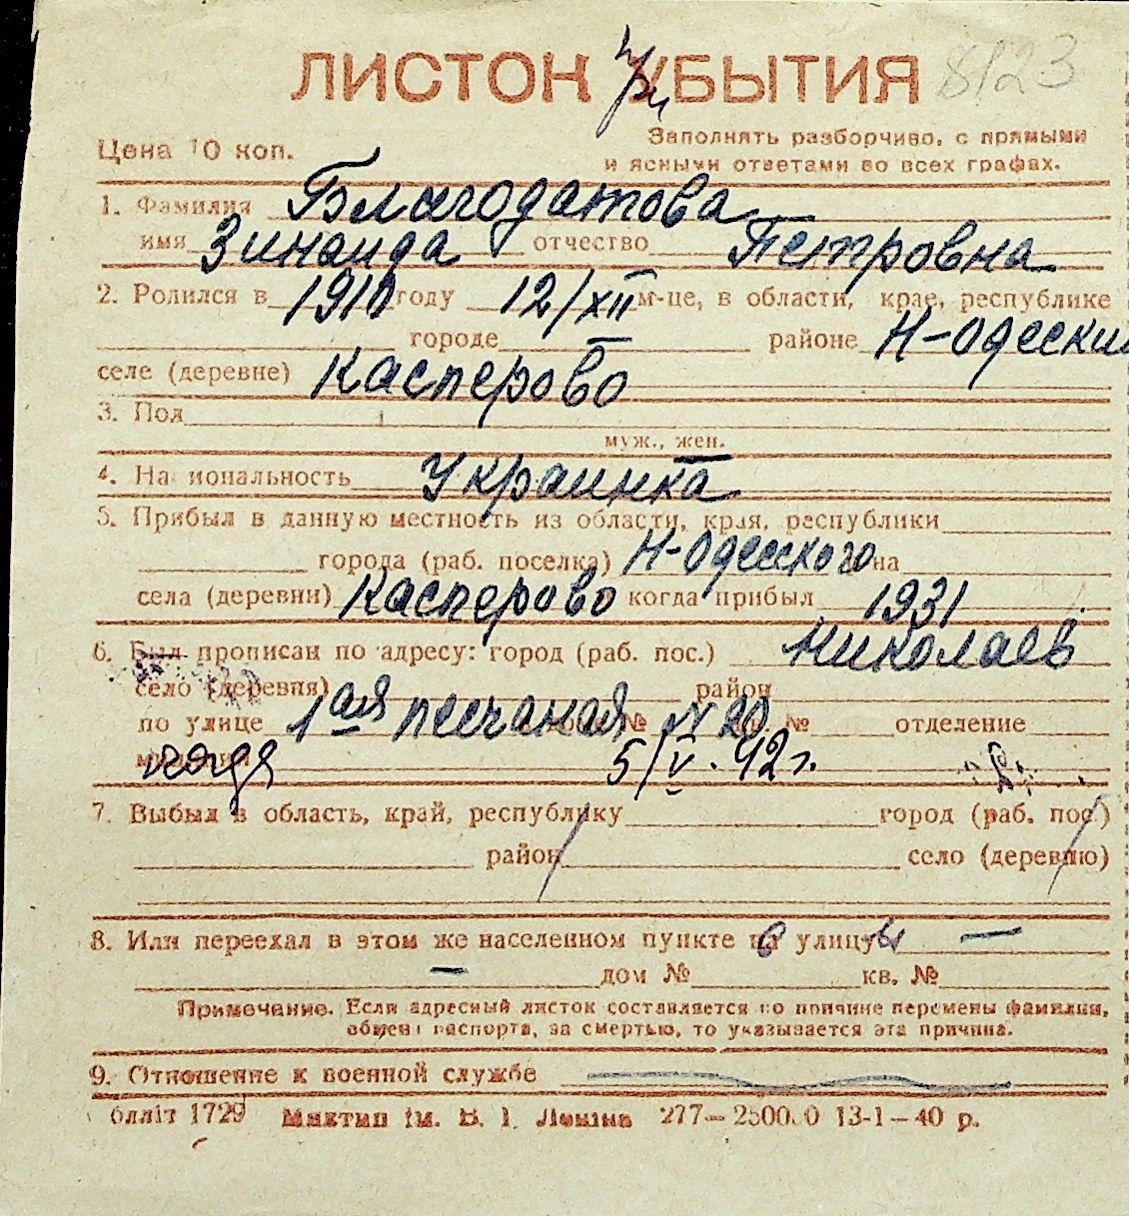 ЛИСТОК УБЫТИЯ 8123
При
Цена 10 коп. Заполнять разборчиво, с прямыми
и ясными ответами во всех графах.
1. Фамилия Благодатова
имя Зинаида отчество Петровна
2. Родился в 1910 году 12/XII м-це, в области, крае, республике
городе районе Н-Одесский
селе (деревне) Касперово
3. Пол
муж., жен.
4. Национальность Украинка
5. Прибыл в данную местность из области, края, республики
города (раб. поселка) Н-Одесского на
села (деревни) Касперово когда прибыл 1931
6. Был прописан по адресу: город (раб. пос.) Николаев
село (деревня) район
по улице 1ая песчаная № N 20 № отделение
когда 5/V. 42 г.
7. Выбыл в область, край, республику город (раб. пос.)
район село (деревню)
8. Или переехал в этом же населенном пункте на улицу —
— дом № кв. №
Примечание. Если адресный листок составляется по причине перемены фамилии,
обмена паспорта, за смертью, то указывается эта причина.
9. Отношение к военной службе
блліт 1729 Миктип ім. В. І. Леніна 277— 13-1—40 р.